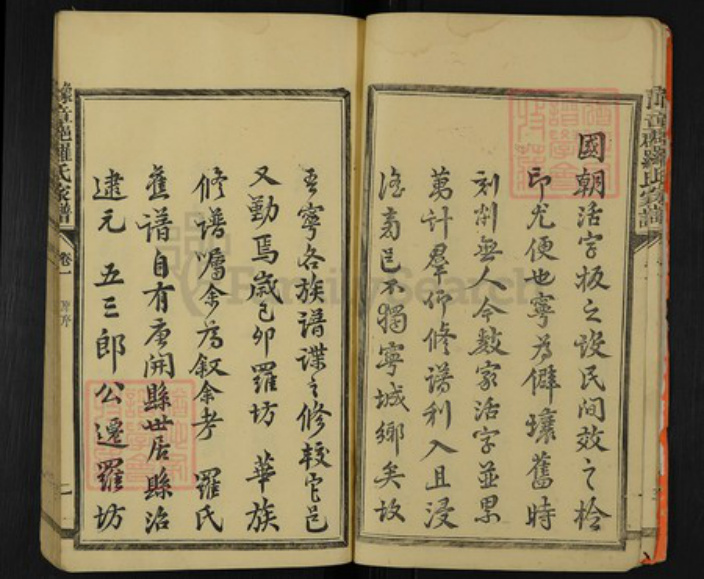 國朝活字板之設民間效之檢
印尤便也寧為僻壤舊時
刻劂無人今數家活字並累
萬計羣仰修譜利入且浸
淫旁邑不獨寧城鄉矣故
吾寧各族譜諜之修較它邑
又勤焉歲己卯羅坊 華族
修譜囑余為叙余考 羅氏
舊譜自有唐開縣世居縣治
逮元 五三郎公遷羅坊
羅氏家譜
卷一
FamilySearch